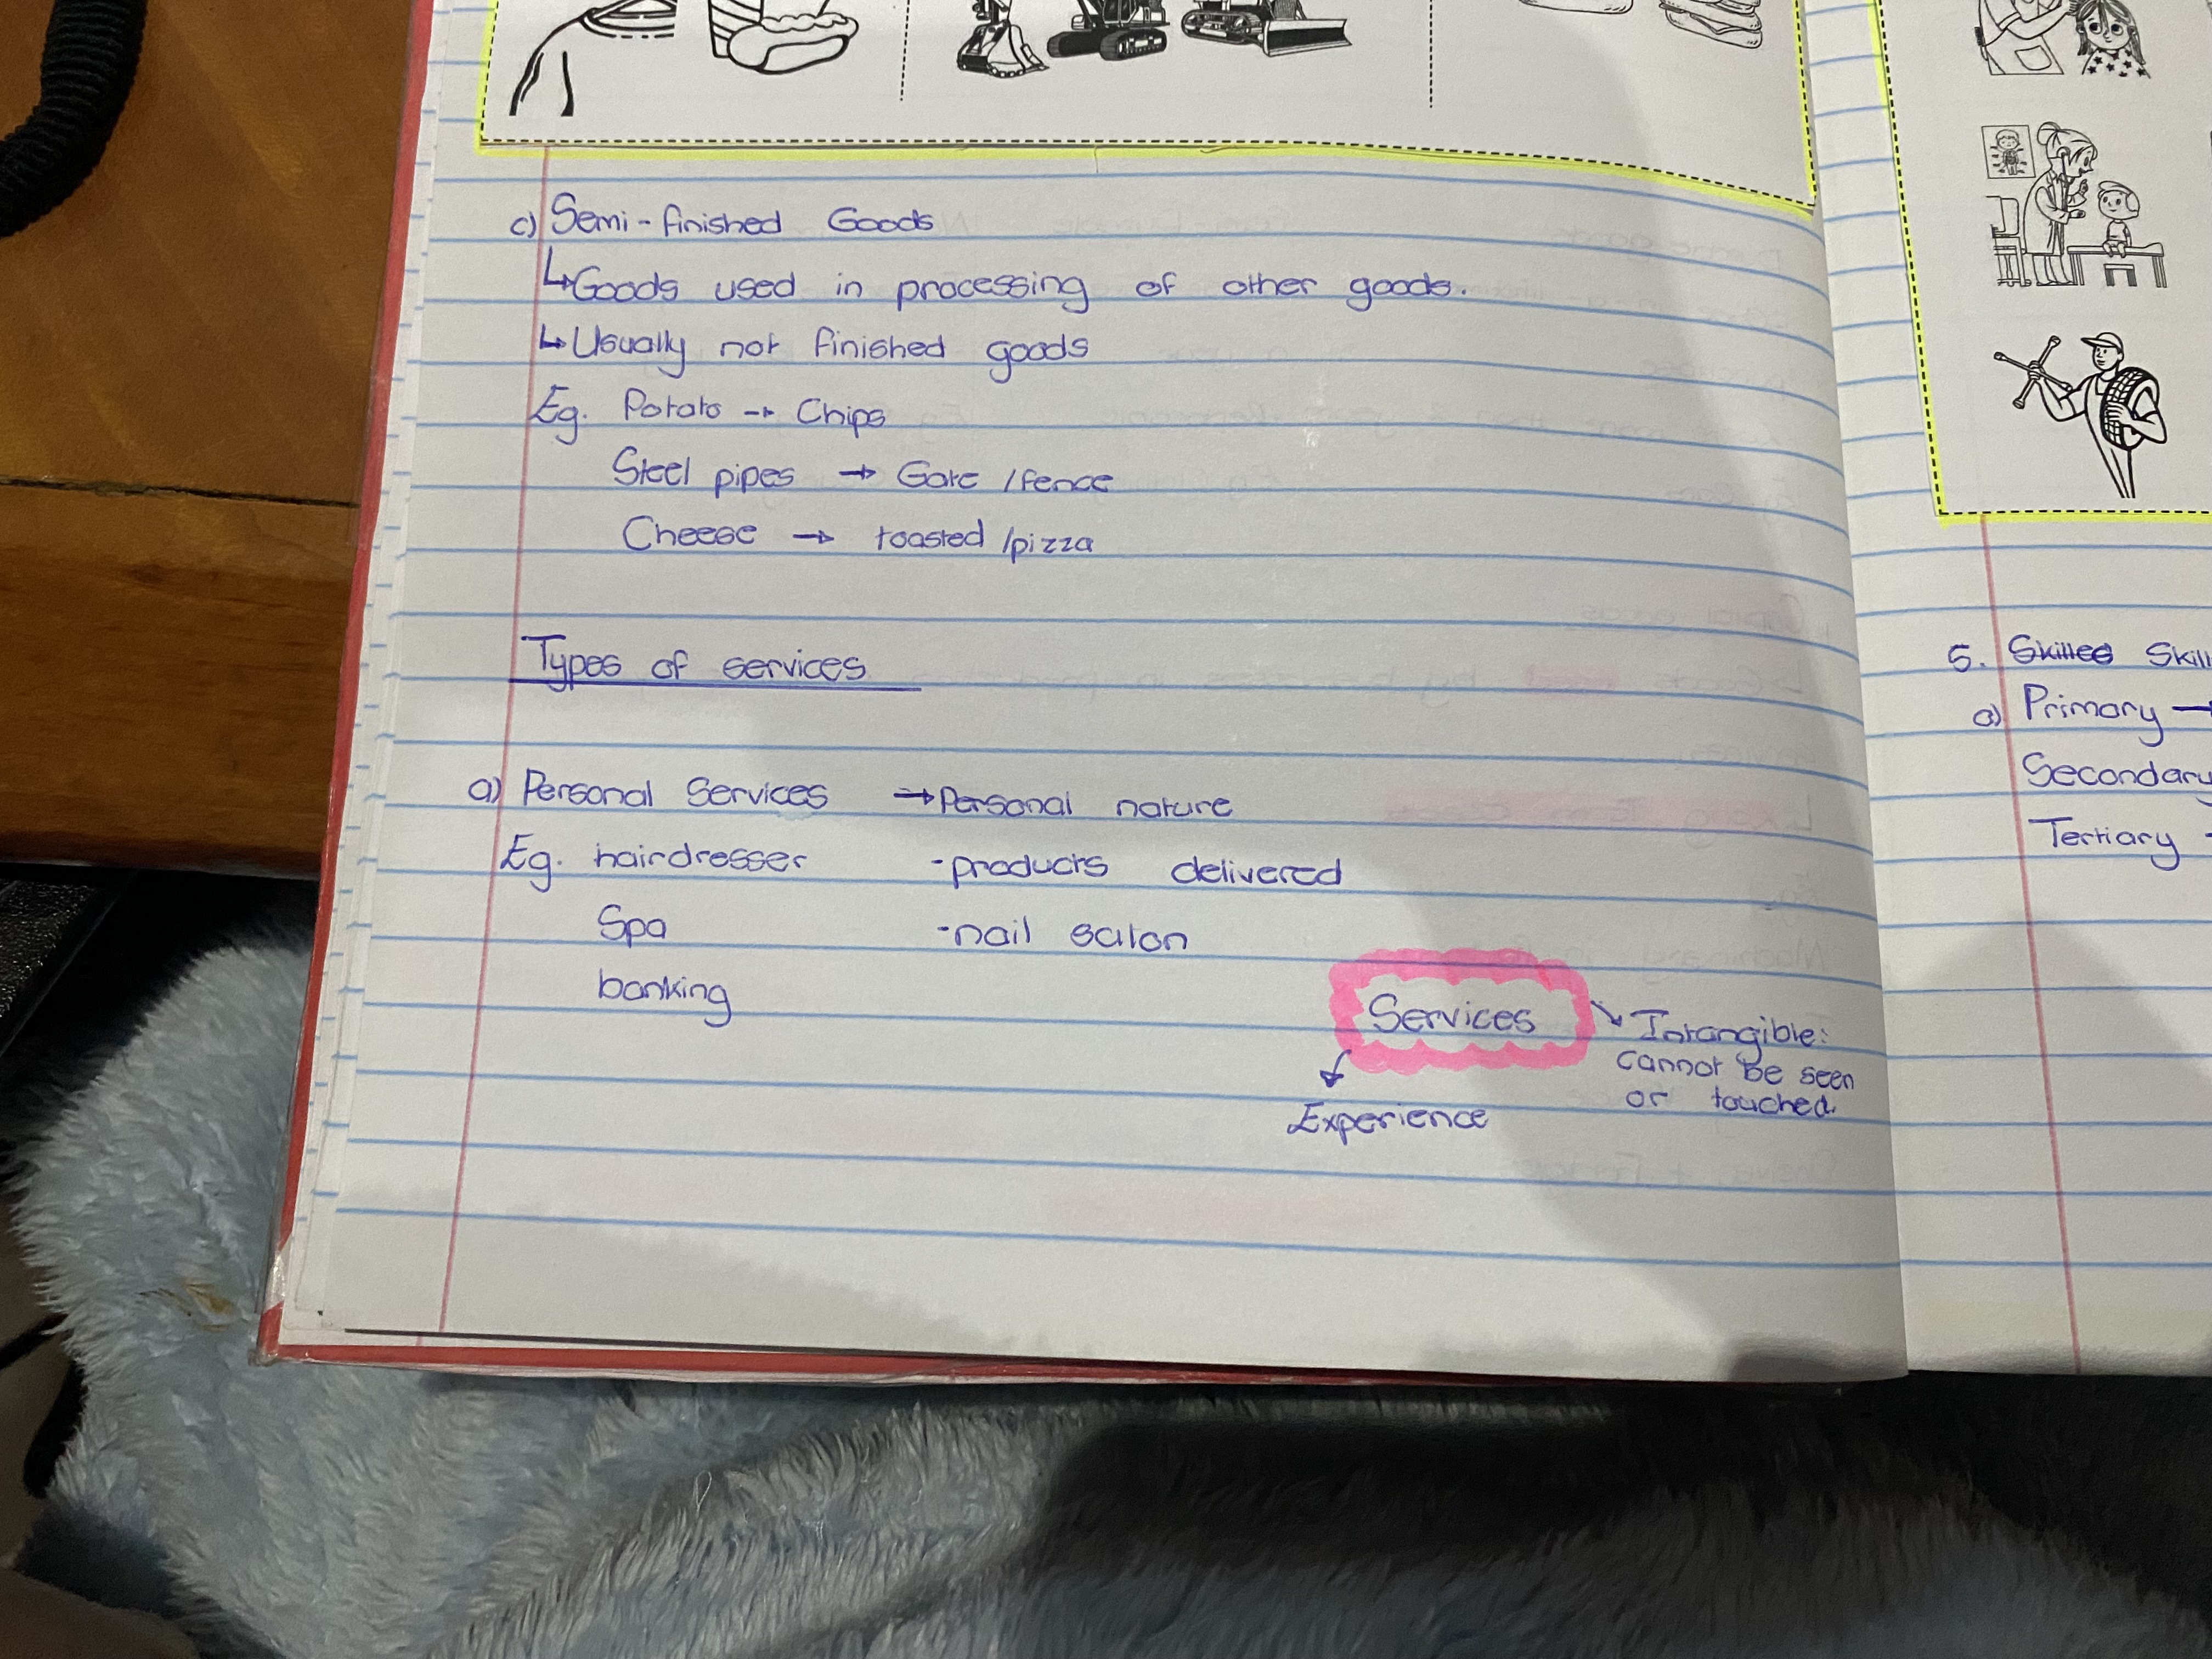 c) Semi-finished Goods
↳ Goods used in processing of other goods.
↳ Usually not finished goods
Eg. Potato → Chips
Steel pipes → Gate /fence
Cheese → toasted /pizza
Types of services
a) Personal Services → Personal nature
Eg. hairdresser - products delivered
Spa - nail salon
banking
Services
Intangible:
cannot be seen
or touched.
Experience
5. Skilled Skill
a) Primary →
Secondary
Tertiary -